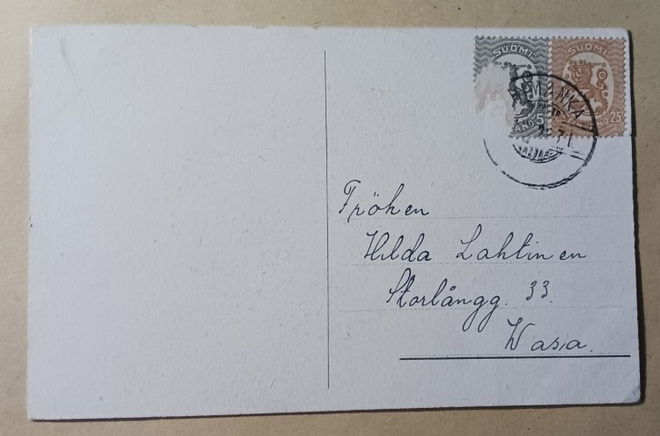 SUOMI SUOMI
5 25
Fröken
Hilda Lahtinen
Storlångg. 33.
Wasa.